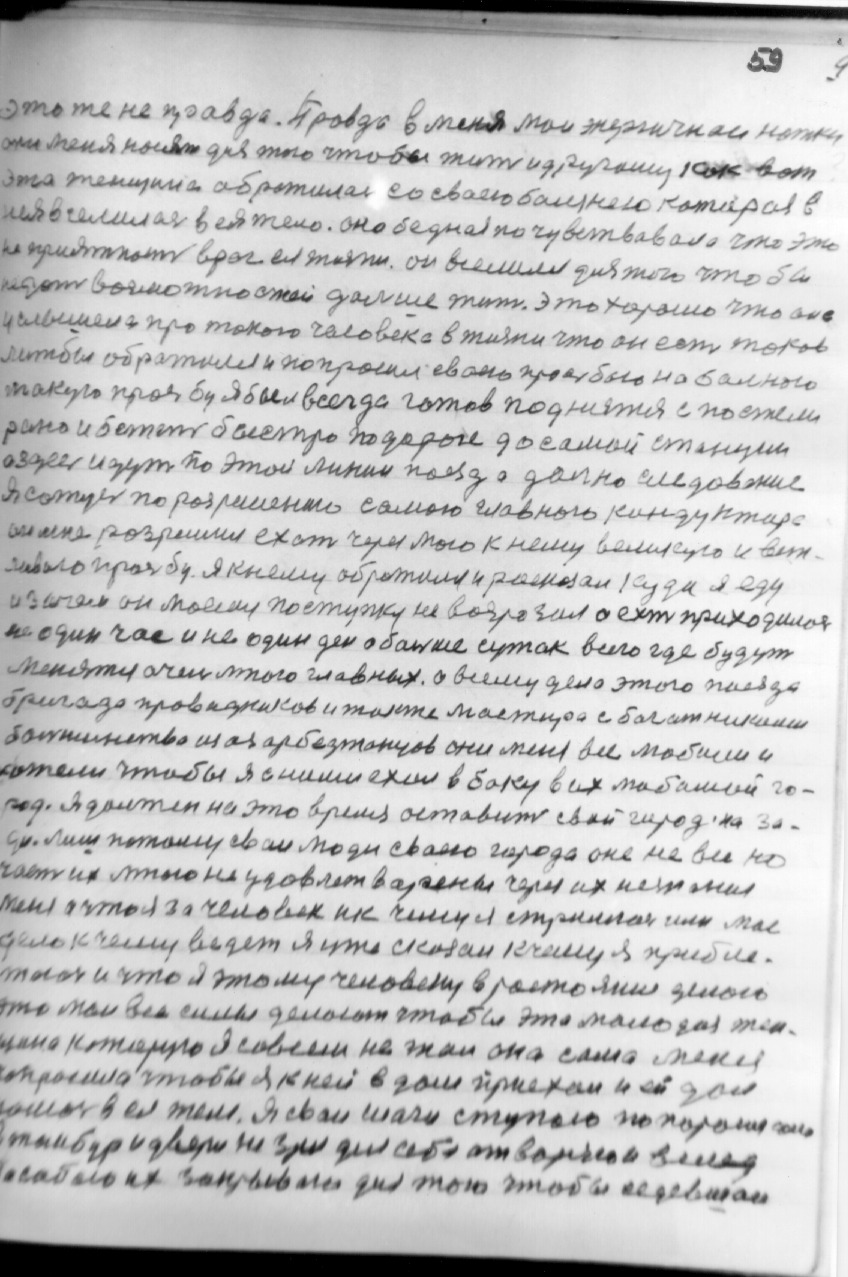 59 9
это же не правда. Правда в меня мои энергичнаи ножки
они меня носят для того чтобы жить и другому как вот
эта женщина обратилас со своею болезнею которая в
нея вселилас в ея тело. она бедная почувствовала что это
не приятност враг ея жизни. он вселился для того чтобы
недат возможностей дальше жит. Это хорошо что она
услышела про такого человека в жизни что он ест таков
лишбы обратился и попросил своею прозбою на балного
такую прозбу я был всегда готов поднятся с постели
рано и бежат быстро подороге до самой станции
а здес идут по этой линии поезда далнo следование
Я сажус по разрешению самого главного кандуктара
он мне розрешил ехат через мою к нему великую и веж-
ливою прозбу. я к нему обратился и расказал куда я еду
и зачем он моему поступку не возрозал а ехат приходилос
не один час и не один ден а болше суток всего где будут
менятся очен много главных. а всему дела этого поезда
бригада проводников и также мастира с
болшинство из азарбезжанцов они меня все любили и
хотели чтобы я с ними ехал в баку в их любимой го-
род. я должен на это время оставит свой город на за-
ди. лиш потому сваи люди своего города оне не все но
част их много не удовлетварены через их незнание
меня а что я за человек и к чему я стримлюс или мое
дело к чему ведет я уже сказал к чему я прибле-
жаюс и что я этому человеку в растояние делаю
это маи все силы делают чтобы эта моло дая жен-
щина которую я совсем не знал она сама меня
попросила чтобы я к ней в дом приехал и ей дал
помощ в ея теле. Я сваи шаги ступаю по
в танбур и двери не зря для себя отварею и вслед
засобою их закрываю для того чтобы